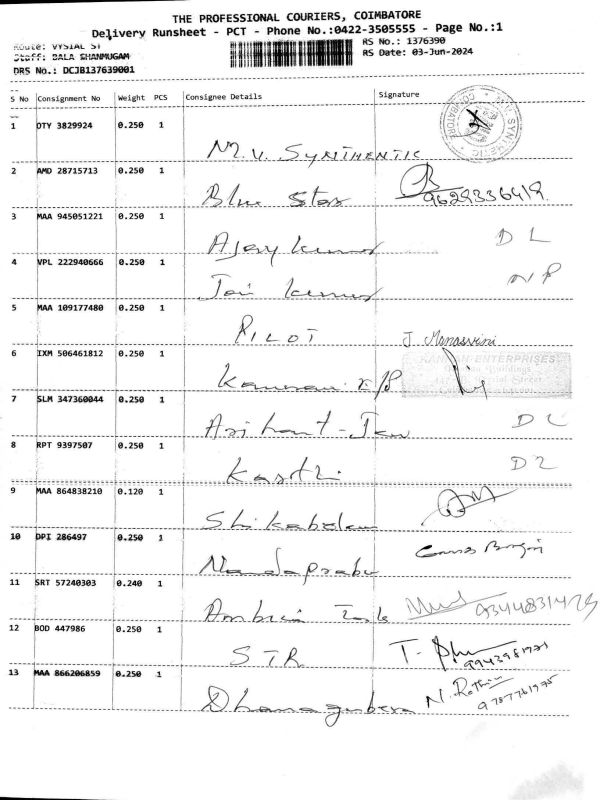 THE PROFESSIONAL COURIERS, COIMBATORE
Delivery Runsheet - PCT - Phone No.:0422-3505555 - Page No.:1
Route: VYSIAL ST RS No.: 1376390
Staff: BALA SHANMUGAM RS Date: 03-Jun-2024
DRS No.: DCJB137639001
S No Consignment No Weight PCS Consignee Details Signature
1 OTY 3829924 0.250 1
M.V. SYNTHENTIC
2 AMD 28715713 0.250 1
Blue Star 9629336419
3 MAA 945051221 0.250 1
Ajay kumar DL
4 VPL 222940666 0.250 1
Jai kumar NP
5 MAA 109177480 0.250 1
PILOT J. Manasvini
6 IXM 506461812 0.250 1
KANNAN ENTERPRISES
7 SLM 347360044 0.250 1
Arihant - DL
8 RPT 9397507 0.250 1
DL
9 MAA 864838210 0.120 1
10 DPI 286497 0.250 1
Nandaprabu
11 SRT 57240303 0.240 1
12 BOD 447986 0.250 1
STR
13 MAA 866206859 0.250 1
9787761975